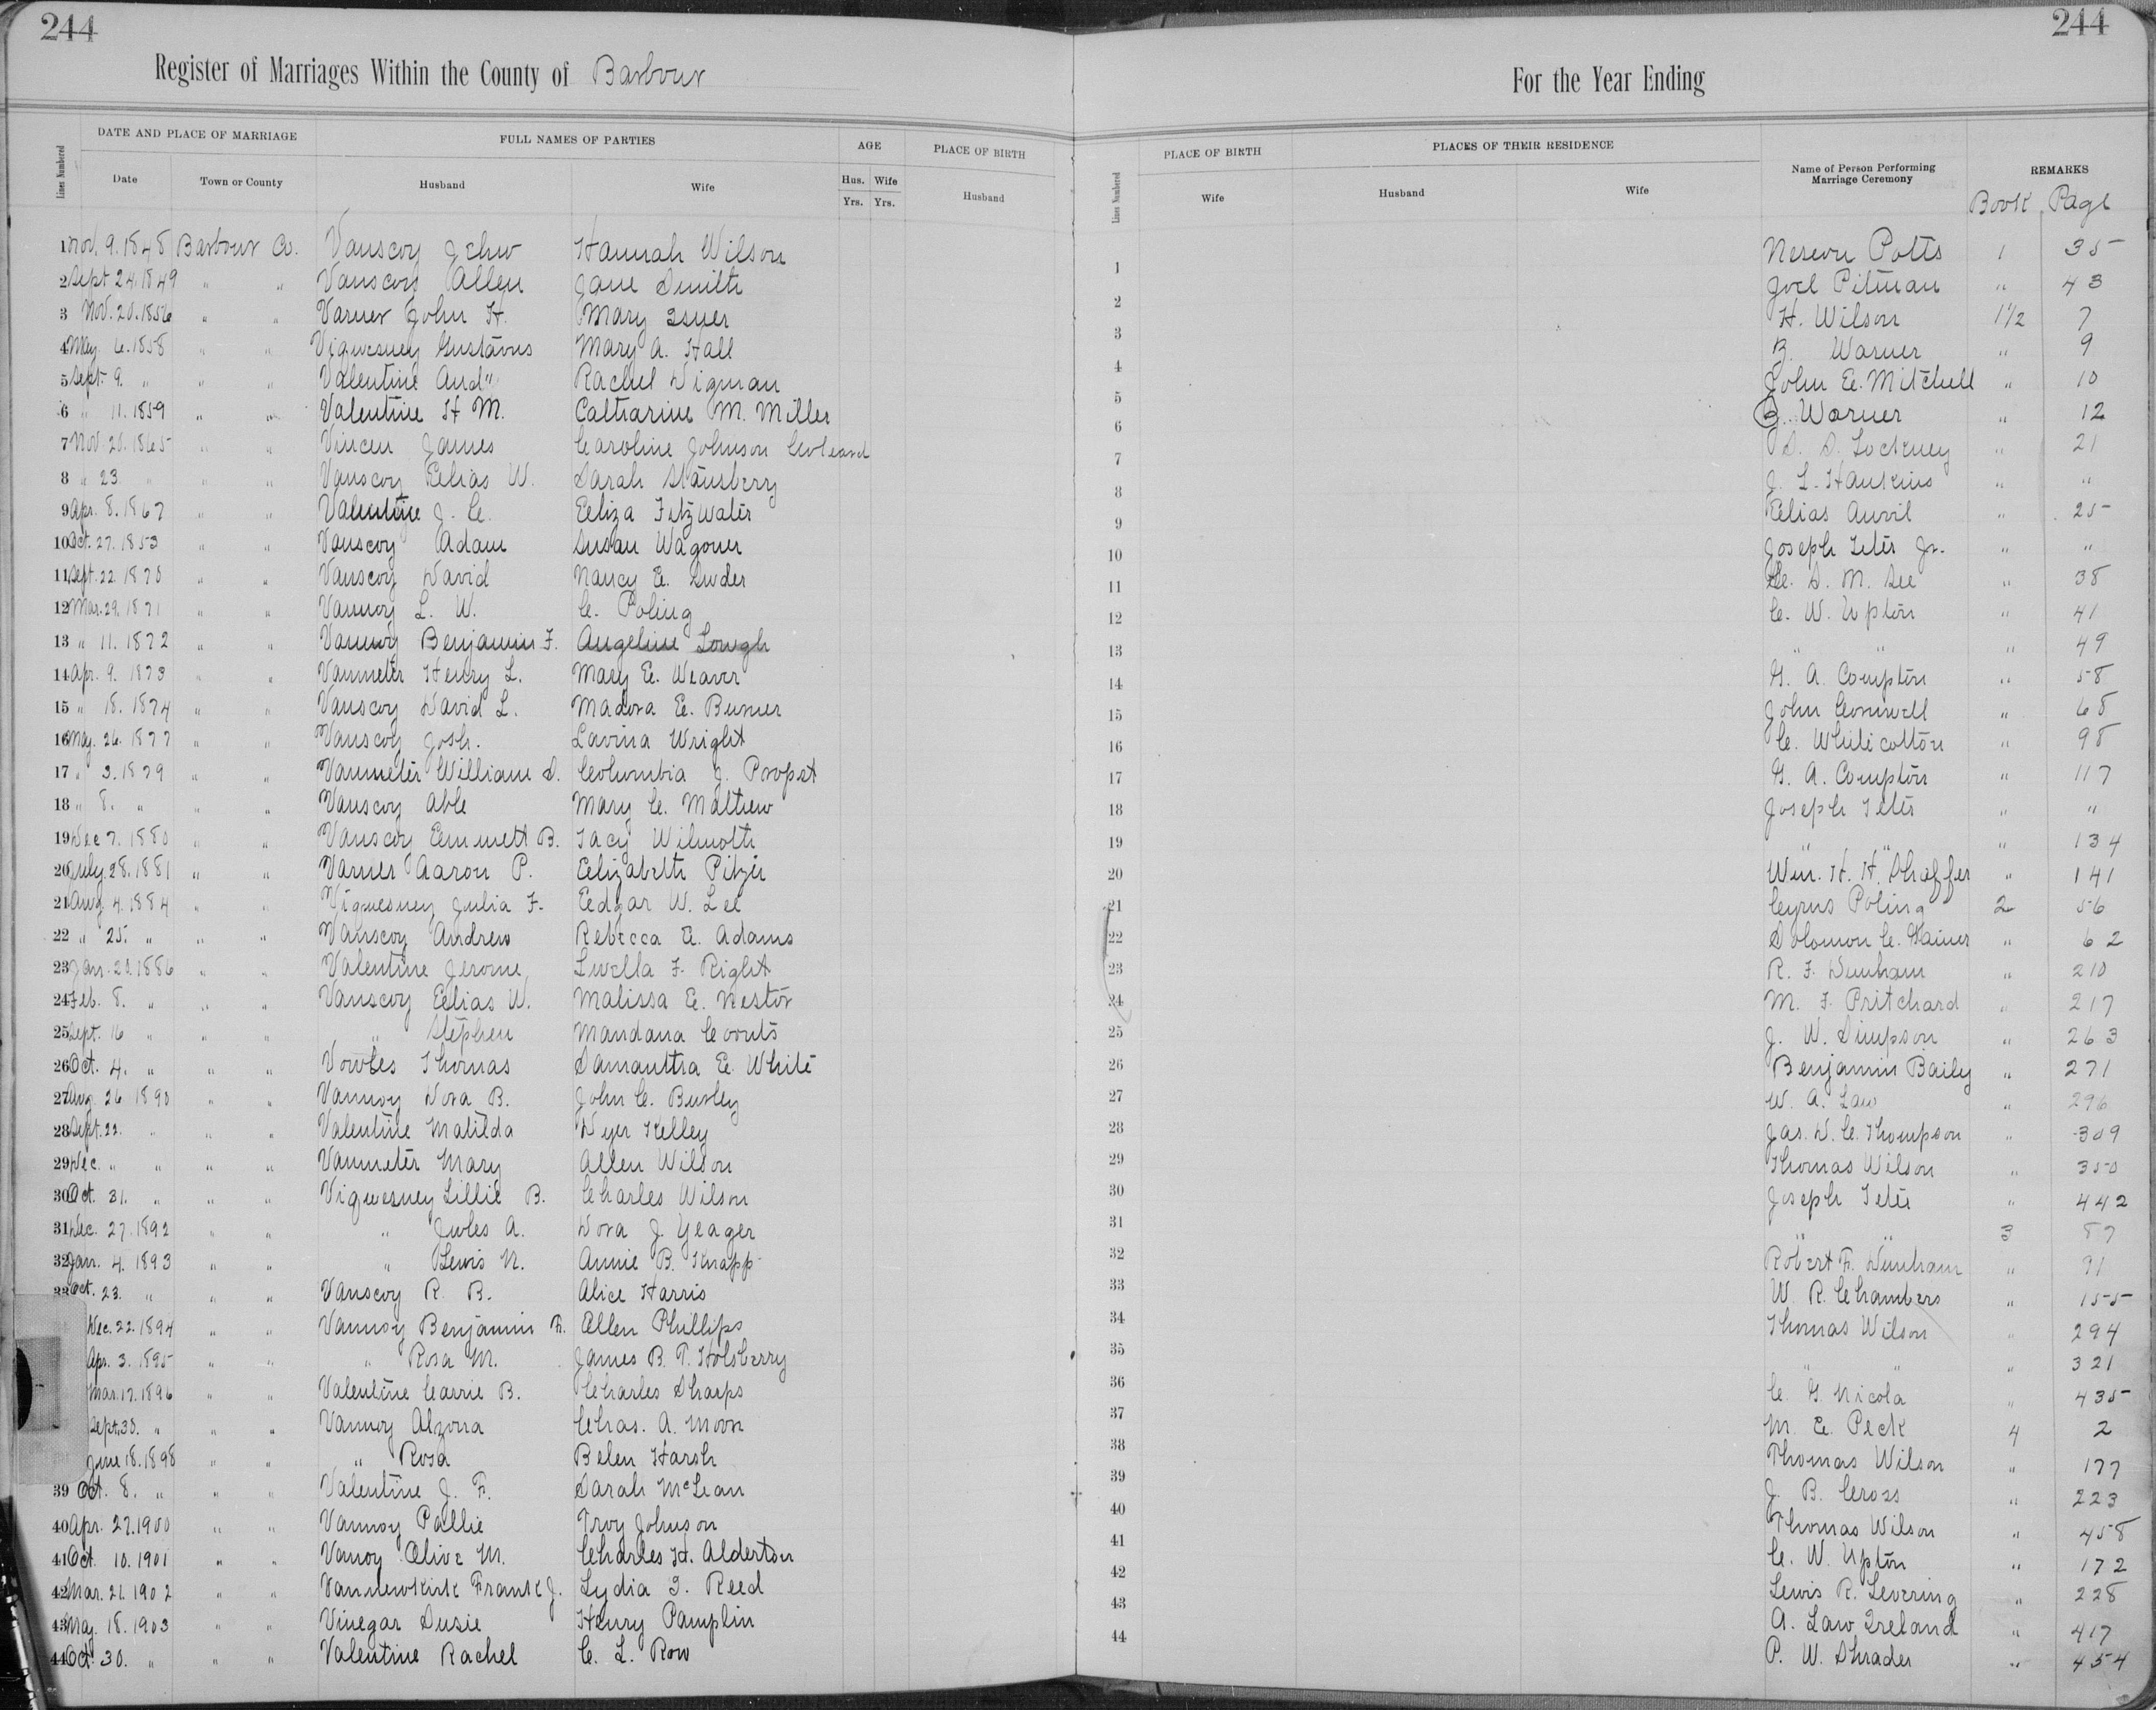 244
244
Register of Marriages Within the County of Barbour
For the Year Ending
Lines Numbered DATE AND PLACE OF MARRIAGE FULL NAMES OF PARTIES AGE PLACE OF BIRTH
Lines Numbered PLACE OF BIRTH PLACES OF THEIR RESIDENCE Name of Person Performing Marriage Ceremony REMARKS
Date Town or County Husband Wife Hus. Wife Husband
Yrs. Yrs.
Wife Husband Wife Book Page
1 Nov. 9. 1848 Barbour Co. Vanscoy Jehu Hannah Wilson 1 Potts 1 35
2 Sept 24. 1849 " " Vanscoy Allen Jane Smith 2 Joel Pitman " 43
3 Nov. 20. 1856 " " Varner John H. Mary Isner 3 H. Wilson 1 1/2 7
4 May 6. 1858 " " Viquesney Gustavus Mary A. Hall 4 Z. Warner " 9
5 Sept. 9. " " " Valentine And" Rachel Digman 5 John E. Mitchell " 10
6 " 11. 1859 " " Valentine H M. Catharine M. Miller 6 Z. Warner " 12
7 Nov. 20. 1865 " " Vincen James Caroline Johnson 7 S. S. Lockney " 21
8 " 23. " " " Vanscoy Elias W. Sarah Stansberry 8 J. L. Hankins " "
9 Apr. 8. 1867 " " Valentine J. C. Eliza Fitzwater 9 Elias Auvil " 25
10 Oct. 27. 1853 " " Vanscoy Adam Susan Wagoner 10 Joseph Teter Jr. " "
11 Sept. 22. 1870 " " Vanscoy David Nancy E. Suder 11 C. S. M. See " 38
12 Mar. 29. 1871 " " Vannoy L. W. C. Poling 12 C. W. Upton " 41
13 " 11. 1872 " " Vannoy Benjamin F. Angeline Lough 13 " " " 49
14 Apr. 9. 1873 " " Vanmeter Henry L. Mary E. Weaver 14 G. A. Compton " 58
15 " 18. 1874 " " Vanscoy David L. Madora E. Burner 15 John Cornwell " 68
16 May. 26. 1877 " " Vanscoy Josh. Lavina Wright 16 C. Whitecotton " 98
17 " 3. 1879 " " Vanmeter William S. Columbia J. Propst 17 G. A. Compton " 117
18 " 8. " " " Vanscoy Able Mary C. Mathew 18 Joseph Teter " "
19 Dec 7. 1880 " " Vanscoy Emmett B. Tacy Wilmoth 19 " " " 134
20 July. 28. 1881 " " Varner Aaron P. Elizabeth Pitzer 20 Wm. H. H. Shaffer " 141
21 Aug 4. 1884 " " Viquesney Julia F. Edgar W. Lee 21 Cyrus Poling 2 56
22 " 25. " " " Vanscoy Andrew Rebecca E. Adams 22 Solomon C. Gainer " 62
23 Jan. 20. 1886 " " Valentine Jerome Luella F. Right 23 R. F. Dunham " 210
24 Feb. 8. " " " Vanscoy Elias W. Malissa E. Nestor 24 M. F. Pritchard " 217
25 Sept. 16 " " " " Stephen Mandana Coonts 25 J. W. Simpson " 263
26 Oct. 4. " " " Vowles Thomas Samantha E. White 26 Benjamin Baily " 271
27 Aug. 26 1890 " " Vannoy Dora B. John C. Burley 27 W. A. Law " 296
28 Sept. 22. " " " Valentine Matilda Dyer Kelley 28 Jas. D. C. Thompson " 309
29 Dec. " " " " Vanmeter Mary Allen Wilson 29 Thomas Wilson " 350
30 Oct. 31. " " " Viquesney Lillie B. Charles Wilson 30 Joseph Teter " 442
31 Dec. 27. 1892 " " " Jules A. Dora J. Yeager 31 " " 3 87
32 Jan. 4. 1893 " " " Lewis N. Annie B. Knapp 32 Robert F. Dunham " 91
33 Oct. 23. " " " Vanscoy R. B. Alice Harris 33 W. R. Chambers " 155
Dec. 22. 1894 " " Vannoy Benjamin F. Allen Phillips 34 Thomas Wilson " 294
Apr. 3. 1895 " " " Rosa M. James B. T. Holsberry 35 " " " 321
Mar. 17. 1896 " " Valentine Carrie B. Charles Sharps 36 C. G. Nicola " 435
Sept. 30. " " " Vannoy Alzona Chas. A. Moon 37 M. E. Peck 4 2
June 18. 1898 " " " Rosa Belen Harsh 38 Thomas Wilson " 177
39 Oct. 8. " " " Valentine J. F. Sarah McLean 39 J. B. Cross " 223
40 Apr. 27. 1900 " " Vannoy Pallie Troy Johnson 40 Thomas Wilson " 458
41 Oct. 10. 1901 " " Vanoy Olive M. Charles H. Alderton 41 C. W. Upton " 172
42 Mar. 21. 1902 " " Vannewkirk Frank J. Lydia I. Reed 42 Lewis R. Levering " 228
43 May. 18. 1903 " " Vinegar Susie Henry Pamplin 43 A. Law Ireland " 417
44 Oct. 30. " " " Valentine Rachel C. L. Row 44 P. W. Shrader " 454